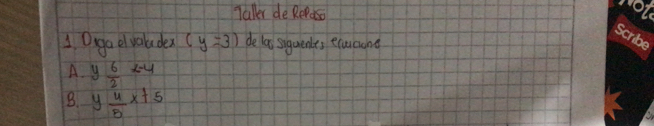 Taller de Repaso
1. Diga el valor de x (y = 3) de las siguientes ecuaciones
A. y 6/2 x-4
B. y 4/5 x + 5
Note
Scribe